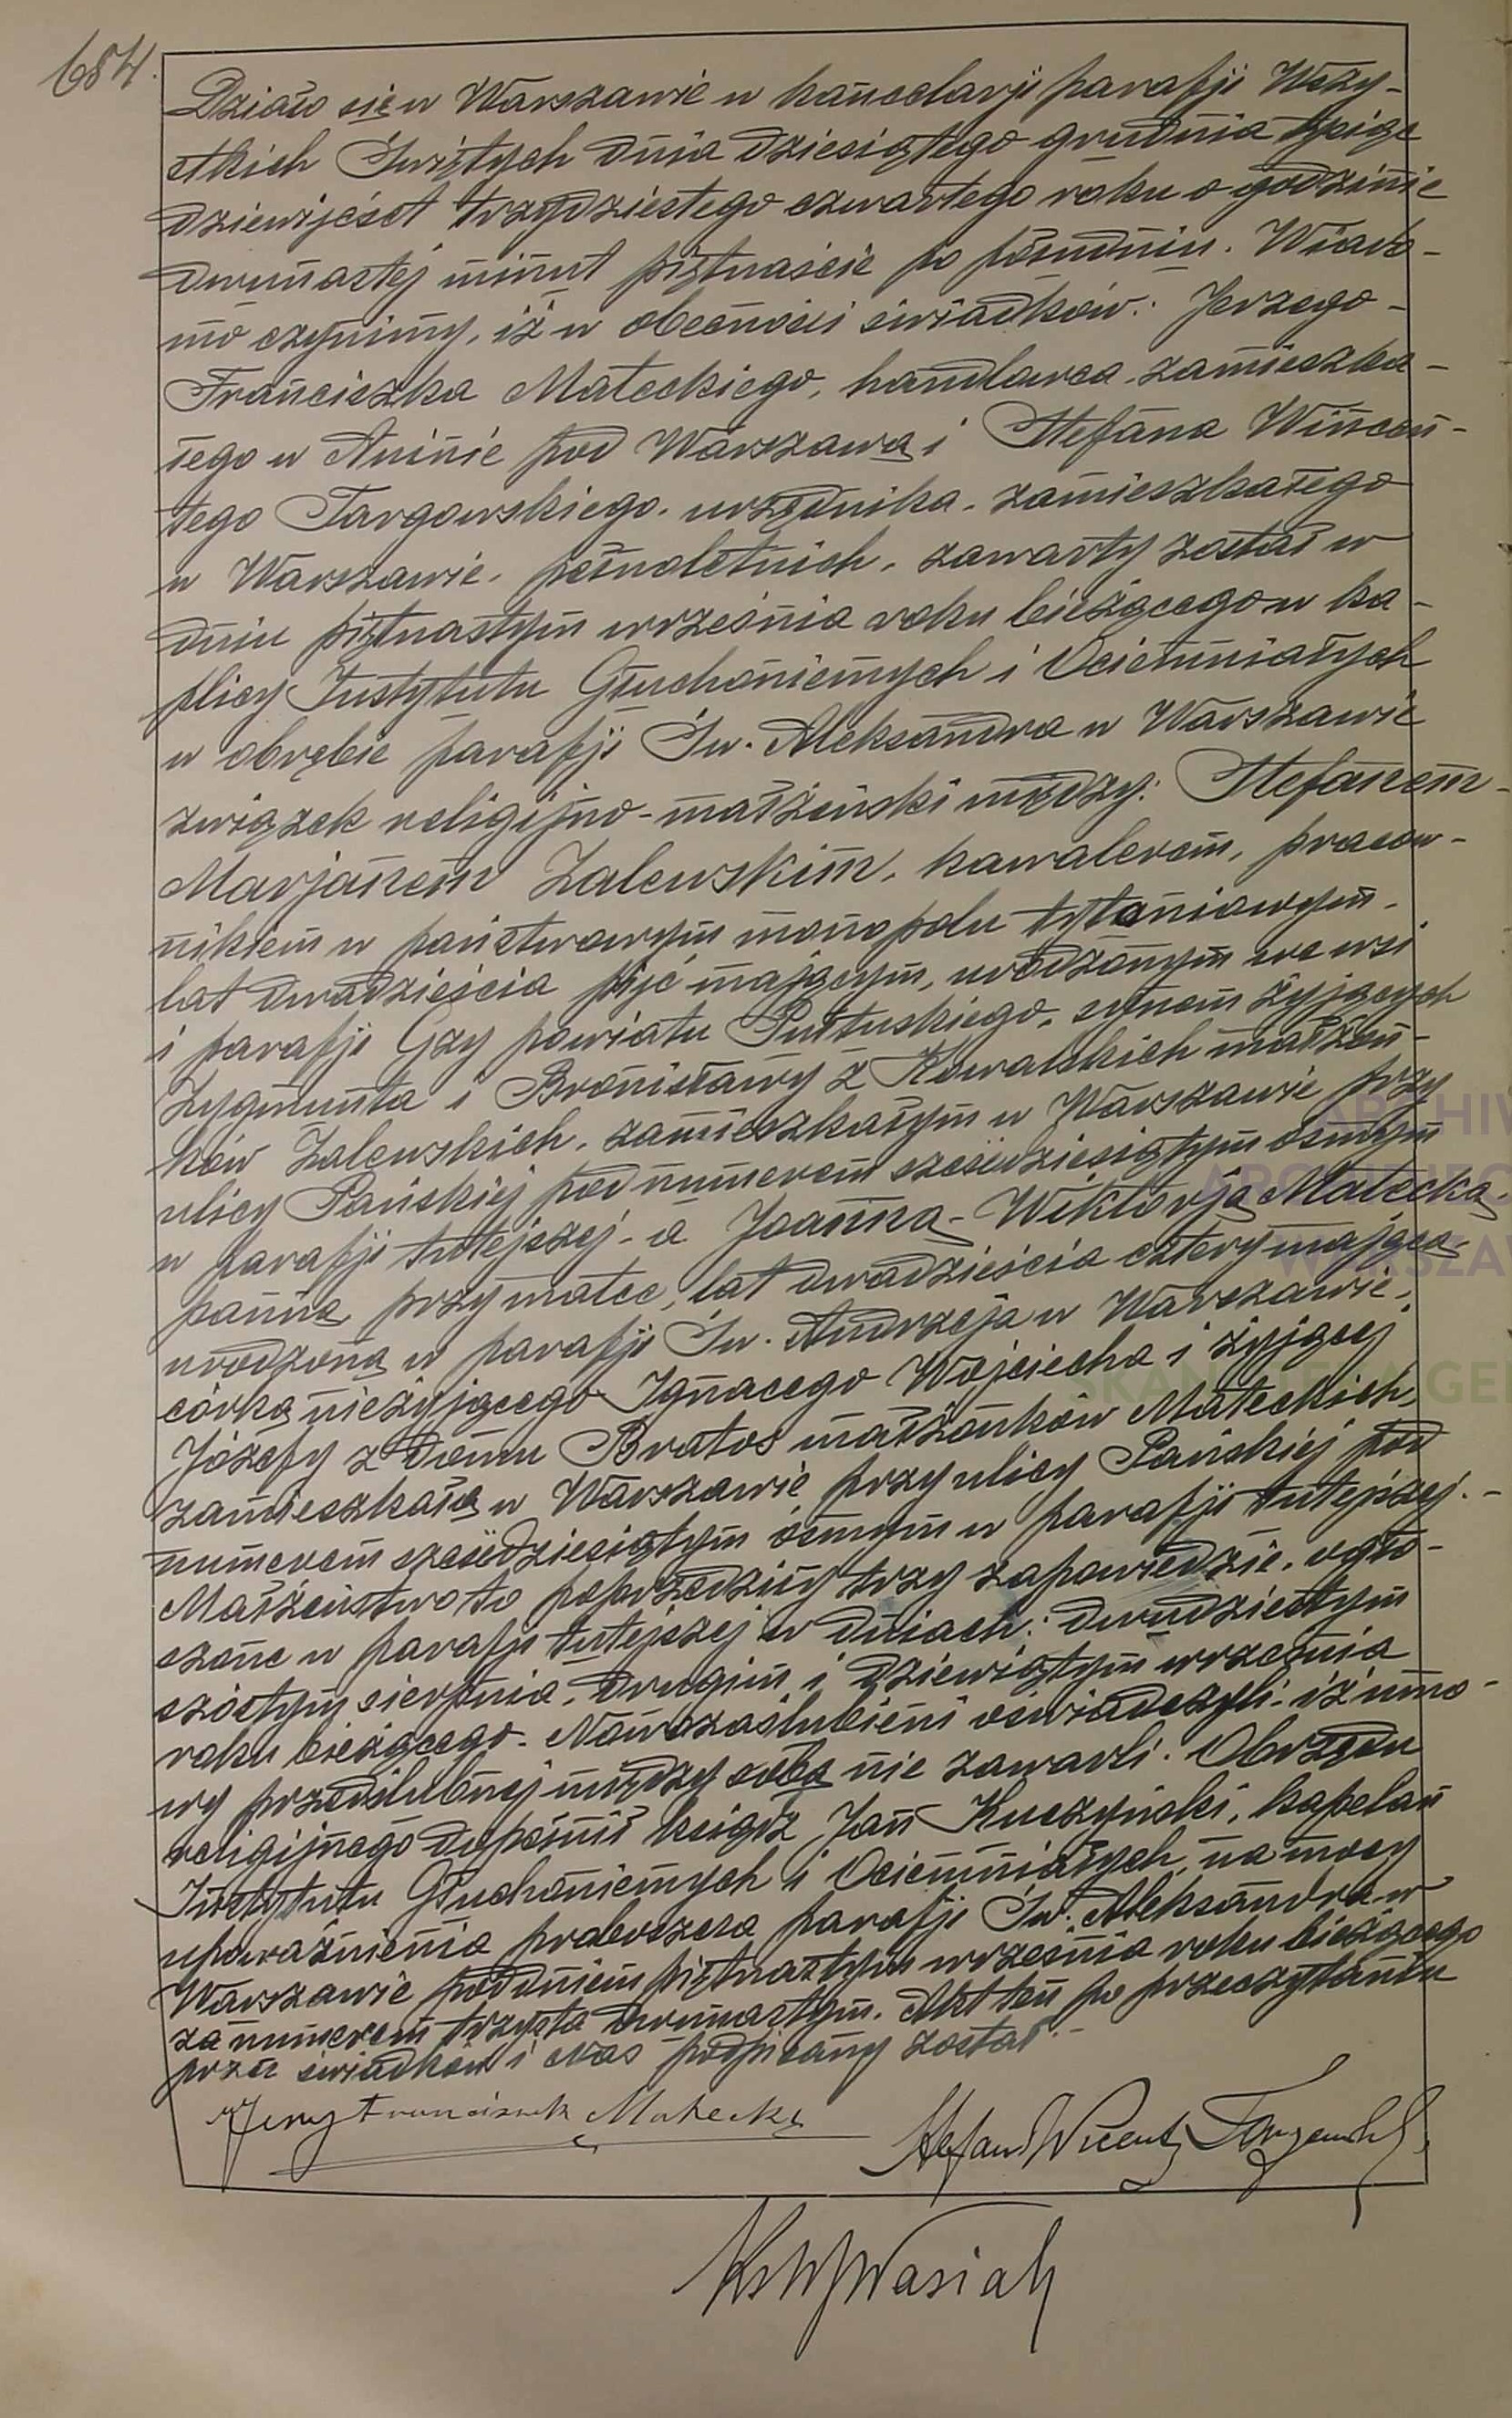 684.
Działo się w Warszawie w kancelarji parafji Wszy-
stkich Świętych dnia dziesiątego grudnia tysiąc
dziewięćset trzydziestego czwartego roku o godzinie
dwunastej minut piętnaście po południu. Wiado-
mo czynimy, iż w obecności świadków: Jerzego -
Franciszka Małeckiego, handlowca, zamieszka-
łego w Aninie pod Warszawą i Stefana Wincen-
tego Targowskiego, urzędnika, zamieszkałego
w Warszawie, pełnoletnich, zawarty został w
dniu piętnastym września roku bieżącego w ka-
plicy Instytutu Głuchoniemych i Ociemniałych
w obrębie parafji Św. Aleksandra w Warszawie
związek religijno-małżeński między: Stefanem -
Marjanem Zalewskim, kawalerem, pracow-
nikiem w państwowym monopolu tytoniowym,
lat dwadzieścia pięć mającym, urodzonym we wsi
i parafji Gzy powiatu Pułtuskiego, synem żyjących
Zygmunta i Bronisławy z Kowalskich małżon-
ków Zalewskich, zamieszkałym w Warszawie przy
ulicy Pańskiej pod numerem sześćdziesiątym ósmym
w parafji tutejszej - a Joanną - Wiktorją Małecką,
panną przy matce, lat dwadzieścia cztery mającą,
urodzoną w parafji Św. Andrzeja w Warszawie,
córką nieżyjącego Ignacego Wojciecha i żyjącej
Józefy z domu Bratos małżonków Małeckich,
zamieszkałą w Warszawie przy ulicy Pańskiej pod
numerem sześćdziesiątym ósmym w parafji tutejszej. -
Małżeństwo to poprzedziły trzy zapowiedzie, ogło-
szone w parafji tutejszej w dniach: dwudziestym
szóstym sierpnia, drugim i dziewiątym września
roku bieżącego. Nowozaślubieni oświadczyli, iż umo-
wy przedślubnej między sobą nie zawarli. Obrzędu
religijnego dopełnił ksiądz Jan Kuczyński, kapelan
Instytutu Głuchoniemych i Ociemniałych, na mocy
upoważnienia proboszcza parafji Św. Aleksandra w
Warszawie pod dniem piętnastym września roku bieżącego
za numerem trzysta dwunastym. Akt ten po przeczytaniu
przez świadków i Nas podpisany został. -
Jerzy Franciszek Małecki
Stefan Wincenty Targowski
Ks W Wasiak
ARCHIW
WARSZA
SKAN GE